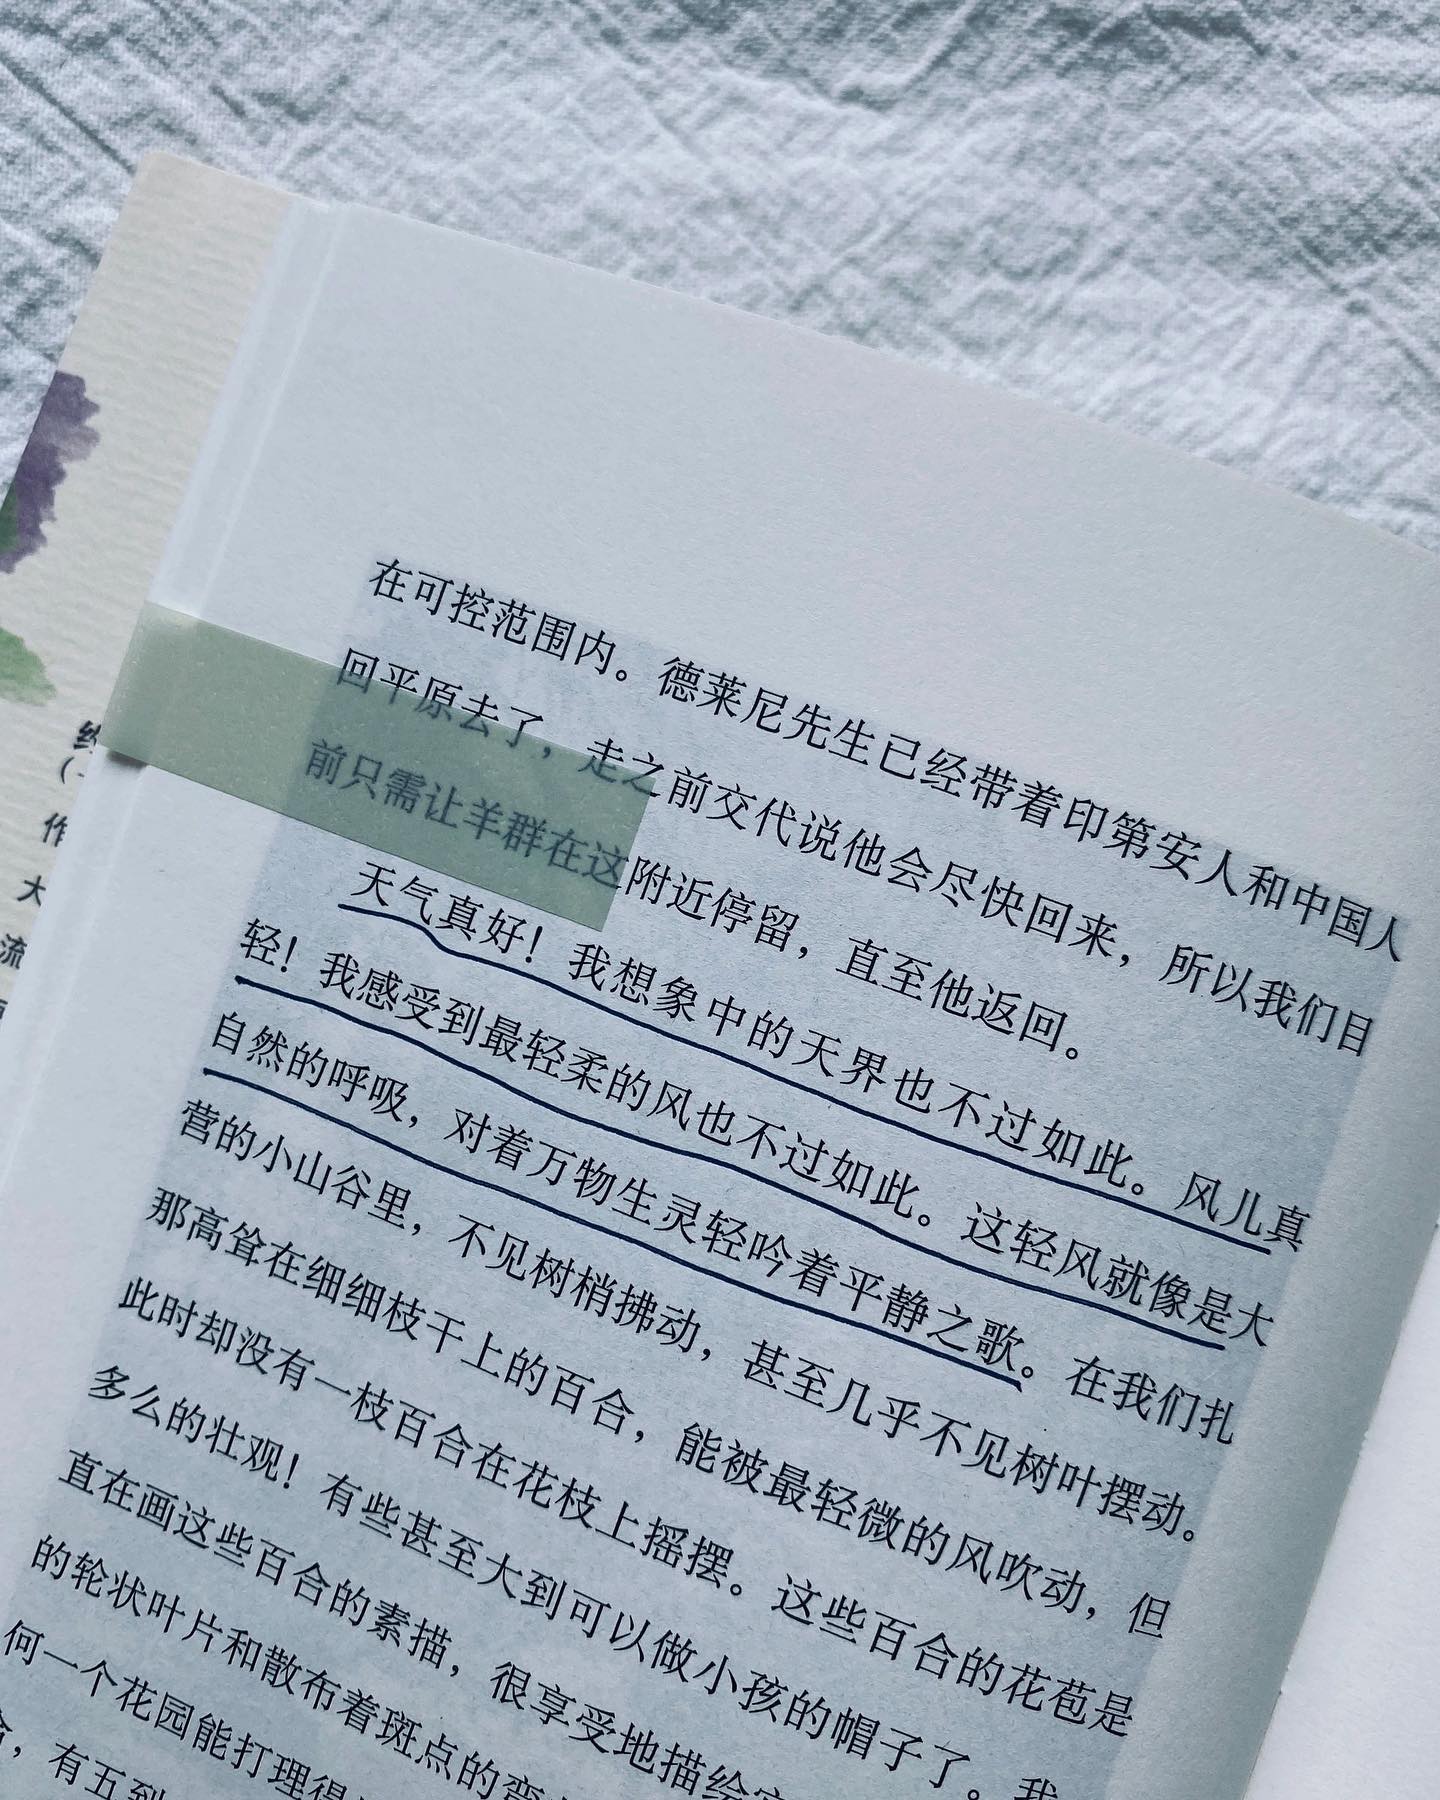 在可控范围内。德莱尼先生已经带着印第安人和中国人
回平原去了，走之前交代说他会尽快回来，所以我们目
前只需让羊群在这附近停留，直至他返回。
天气真好！我想象中的天界也不过如此。风儿真
轻！我感受到最轻柔的风也不过如此。这轻风就像是大
自然的呼吸，对着万物生灵轻吟着平静之歌。在我们扎
营的小山谷里，不见树梢拂动，甚至几乎不见树叶摆动。
那高耸在细细枝干上的百合，能被最轻微的风吹动，但
此时却没有一枝百合在花枝上摇摆。这些百合的花苞是
多么的壮观！有些甚至大到可以做小孩的帽子了。我
直在画这些百合的素描，很享受地描绘
的轮状叶片和散布着斑点的弯
何一个花园能打理得
，有五到
作
大
流